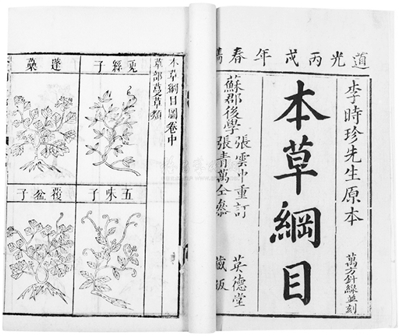 道光丙戌年春鐫
李時珍先生原本
本草綱目
萬方針線並刻
蘇郡後學
張雲中重訂
張青萬全參
英德堂
藏版
本草綱目圖卷中
草部蔓草類
菟絲子
蓬蘽
五味子
覆盆子